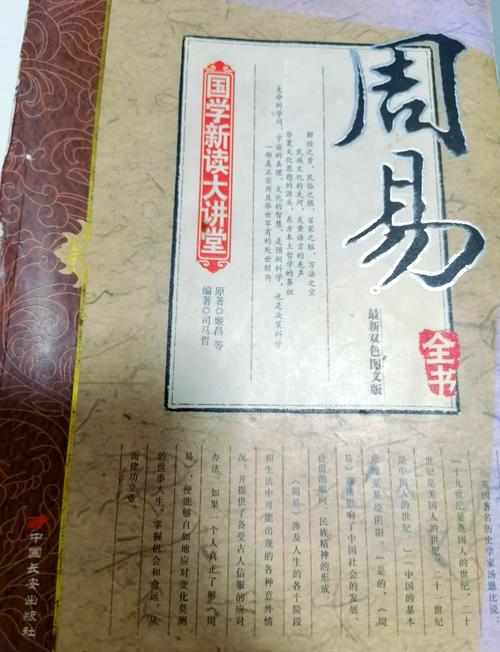 周易
全书
最新双色图文版
国学新读大讲堂
群经之首，民俗之根，百家之脉，万法之宗
民族文化的先河，炎黄语言的先声
华夏文化思想的源头，东方本土哲学的鼻祖
生命的学问，宇宙的真理，文化的智慧，是预测科学，也是决策科学
一部真正实用且举世罕有的处世经纬
原著◎姬昌 等
编著◎司马哲
英国著名历史学家汤恩比说：
“十九世纪是英国人的世纪，二十
世纪是美国人的世纪，二十一世纪
是中国人的世纪。”“中国的基本
是易经阴阳” 是的，《周
易》影响了中国社会的发展、
价值的取向、民族精神的形成
《周易》涉及人生的各个阶段
和生活中可能出现的各种意外情
况，并提供了备受古人信服的应对
办法。如果一个人真正了解《周
易》，便能够自如地应对变化莫测
的世事人生，掌握机会和命运，从
而建功立业
中国长安出版社